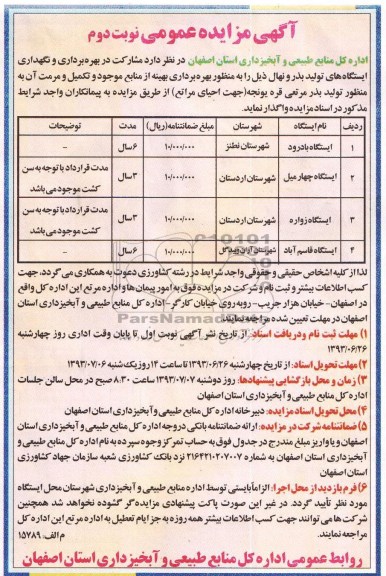 آگهی مزایده عمومی نوبت دوم
اداره کل منابع طبیعی و آبخیزداری استان اصفهان در نظر دارد مشارکت در بهره‌برداری و نگهداری
ایستگاه‌های تولید بذر و نهال ذیل را به منظور بهره‌برداری بهینه از منابع موجود و تکمیل و مرمت آن به
منظور تولید بذر مرتعی قره یونجه(جهت احیای مراتع) از طریق مزایده به پیمانکاران واجد شرایط
مذکور در اسناد مزایده واگذار نماید.
ردیف نام ایستگاه شهرستان مبلغ ضمانتنامه(ریال) مدت توضیحات
۱ ایستگاه بادرود شهرستان نطنز ۱۰/۰۰۰/۰۰۰ ۶ سال -
۲ ایستگاه چهار میل شهرستان اردستان ۱۰/۰۰۰/۰۰۰ ۳ سال مدت قرارداد با توجه به سن
کشت موجود می باشد
۳ ایستگاه زواره شهرستان اردستان ۱۰/۰۰۰/۰۰۰ ۳ سال مدت قرارداد با توجه به سن
کشت موجود می باشد
۴ ایستگاه قاسم آباد شهرستان آران وبیدگل ۱۰/۰۰۰/۰۰۰ ۶ سال -
لذا از کلیه اشخاص حقیقی و حقوقی واجد شرایط در رشته کشاورزی دعوت به همکاری می گردد، جهت
کسب اطلاعات بیشتر و ثبت نام و شرکت در مزایده فوق به امور پیمان ها و اداره مرتع این اداره کل واقع
در اصفهان- خیابان هزار جریب- روبه روی خیابان کارگر -اداره کل منابع طبیعی و آبخیزداری استان
اصفهان در مهلت تعیین شده مراجعه نمایند.
۱) مهلت ثبت نام و دریافت اسناد: از تاریخ نشر آگهی نوبت اول تا پایان وقت اداری روز چهارشنبه
۱۳۹۳/۰۶/۲۶
۲) مهلت تحویل اسناد: از تاریخ چهارشنبه ۱۳۹۳/۰۶/۲۶ تا ساعت ۱۴ روز یکشنبه ۱۳۹۳/۰۷/۰۶
۳) زمان و محل بازگشایی پیشنهادها: روز دوشنبه ۱۳۹۳/۰۷/۰۷ ساعت ۸:۳۰ صبح در محل سالن جلسات
اداره کل منابع طبیعی و آبخیزداری استان اصفهان
۴) محل تحویل اسناد مزایده: دبیرخانه اداره کل منابع طبیعی و آبخیزداری استان اصفهان
۵) ضمانتنامه شرکت در مزایده: ارائه ضمانتنامه بانکی در وجه اداره کل منابع طبیعی و آبخیزداری استان
اصفهان و یا واریز مبلغ مندرج در جدول فوق به حساب تمرکز وجوه سپرده به نام اداره کل منابع طبیعی و
آبخیزداری استان اصفهان به شماره ۲۱۶۴۲۱۰۲۰۷۰۰۷ نزد بانک کشاورزی شعبه سازمان جهاد کشاورزی
استان اصفهان
۶) فرم بازدید از محل اجرا: الزاماً بایستی توسط اداره منابع طبیعی و آبخیزداری شهرستان محل ایستگاه
مورد نظر تأیید گردد. در غیر این صورت پاکت پیشنهادی مزایده‌گر گشوده نخواهد شد همچنین
شرکت ها می توانند جهت کسب اطلاعات بیشتر همه روزه به جز ایام تعطیل به اداره مرتع این اداره کل
مراجعه نمایند. م الف: ۱۵۷۸۹
روابط عمومی اداره کل منابع طبیعی و آبخیزداری استان اصفهان